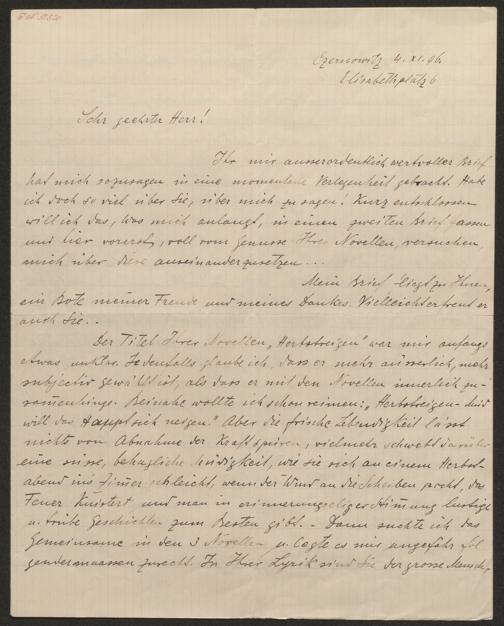 Czernowitz 4. XI. 96.
Elisabethplatz 6
Sehr geehrter Herr!
Ihr mir ausserordentlich wertvoller Brief
hat mich sozusagen in eine momentane Verlegenheit gebracht. Habe
ich doch so viel über Sie, über mich zu sagen! Kurz entschlossen
will ich das, was mich anlangt, in einen zweiten Brief fassen
und hier vorerst, voll vom Genusse Ihrer Novellen, versuchen,
mich über diese auseinanderzusetzen...
Mein Brief fliegt zu Ihnen,
ein Bote meiner Freude und meines Dankes. Vielleicht erfreut er
auch Sie..
Der Titel Ihrer Novellen "Herbstreigen" war mir anfangs
etwas unklar. Jedenfalls glaube ich, dass er mehr äusserlich, mehr
subjectiv gewählt ist, als dass er mit den Novellen innerlich zu-
sammenhinge. Beinahe wollte ich schon reimen: "Herbstreigen - Müd
will das Haupt sich neigen." Aber die frische Lebendigkeit lässt
nichts von Abnahme der Kraft spüren, vielmehr schwebt darüber
eine süsse, behagliche Müdigkeit, wie sie sich an einem Herbst-
abend ins Zimmer schleicht, wenn der Wind an die Scheiben pocht, das
Feuer knistert und man in erinnerungseliger Stimmung lustige
u. trübe Geschichten zum Besten gibt. - Dann suchte ich das
Gemeinsame in den 3 Novellen u. legte es mir ungefähr fol
gendermaassen zurecht. In Ihrer Lyrik sind Sie der grosse Mensch,